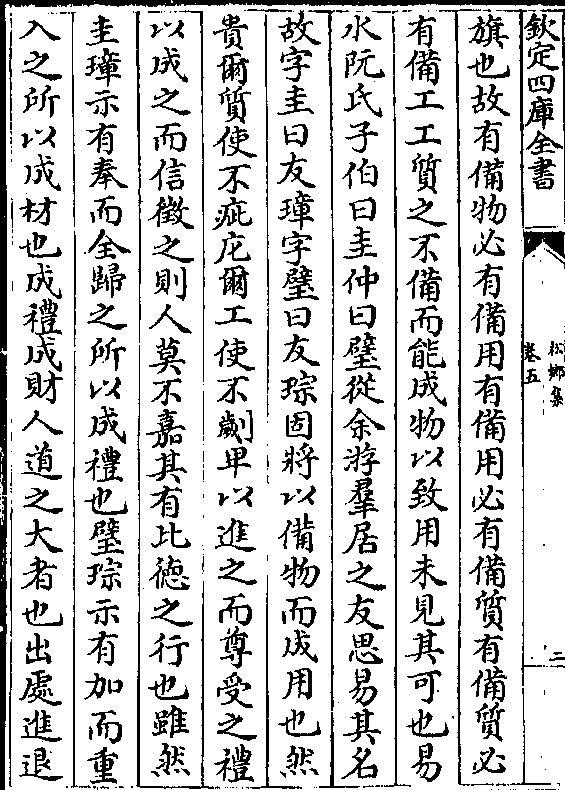 欽定四庫全書
松鄉集
卷五
二
旗也故有備物必有備用有備用必有備質有備質必
有備工工質之不備而能成物以致用未見其可也易
水阮氏子伯曰圭仲曰璧從余游羣居之友思易其名
故字圭曰友璋字璧曰友琮固將以備物而成用也然
貴爾質使不疵庀爾工使不劌毕以進之而尊受之禮
以成之而信徵之則人莫不嘉其有比德之行也雖然
圭璋示有奉而全歸之所以成禮也璧琮示有加而重
入之所以成材也成禮成財人道之大者也出處進退